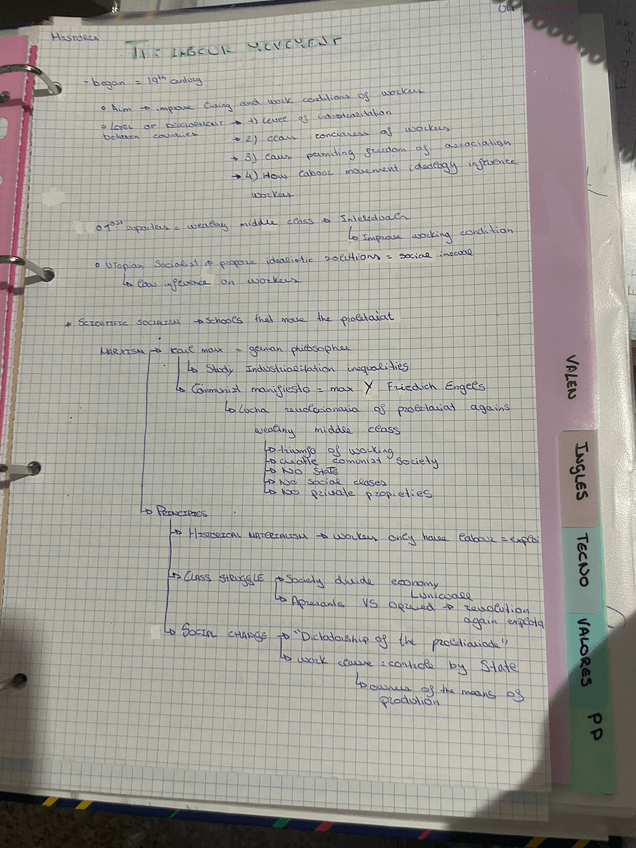 HISTORIA
THE LABOUR MOVEMENT
- began = 19th century
• Aim → improve living and work conditions of workers
• LEVEL OF DEVELOPMENT → 1) Level of
between countries
→ 2) class of workers
→ 3) Laws permiting freedom of association
→ 4) How labour movement ideology influence
workers
• 1st = wealthy middle class →
↳ Improve working condition
• Utopian Socialist → propose idealistic solutions = social
↳ low influence on workers
* SCIENTIFIC SOCIALISM → Schools that move the proletariat
MARXISM → Karl marx = german philosopher
↳ Study Industrialitation inequalities
↳ Communist manifiesto = max Y Friedich Engels
↳ Lucha of proletariat agains
wealthy middle class
↳ triumfo of working
↳ create comunist society
↳ NO State
↳ NO social clases
↳ NO private propieties
↳ PRINCIPLES
↳ HISTORICAL MATERIALISM → workers only have labour =
↳ CLASS STRUGGLE → Society divide economy
↳ VS → revolution
again
↳ SOCIAL CHANGE → "Dictadorship of the
↳ work : controls by State
↳ owners of the means of
prodution
VALEN
INGLES
TECNO
VALORES
PP